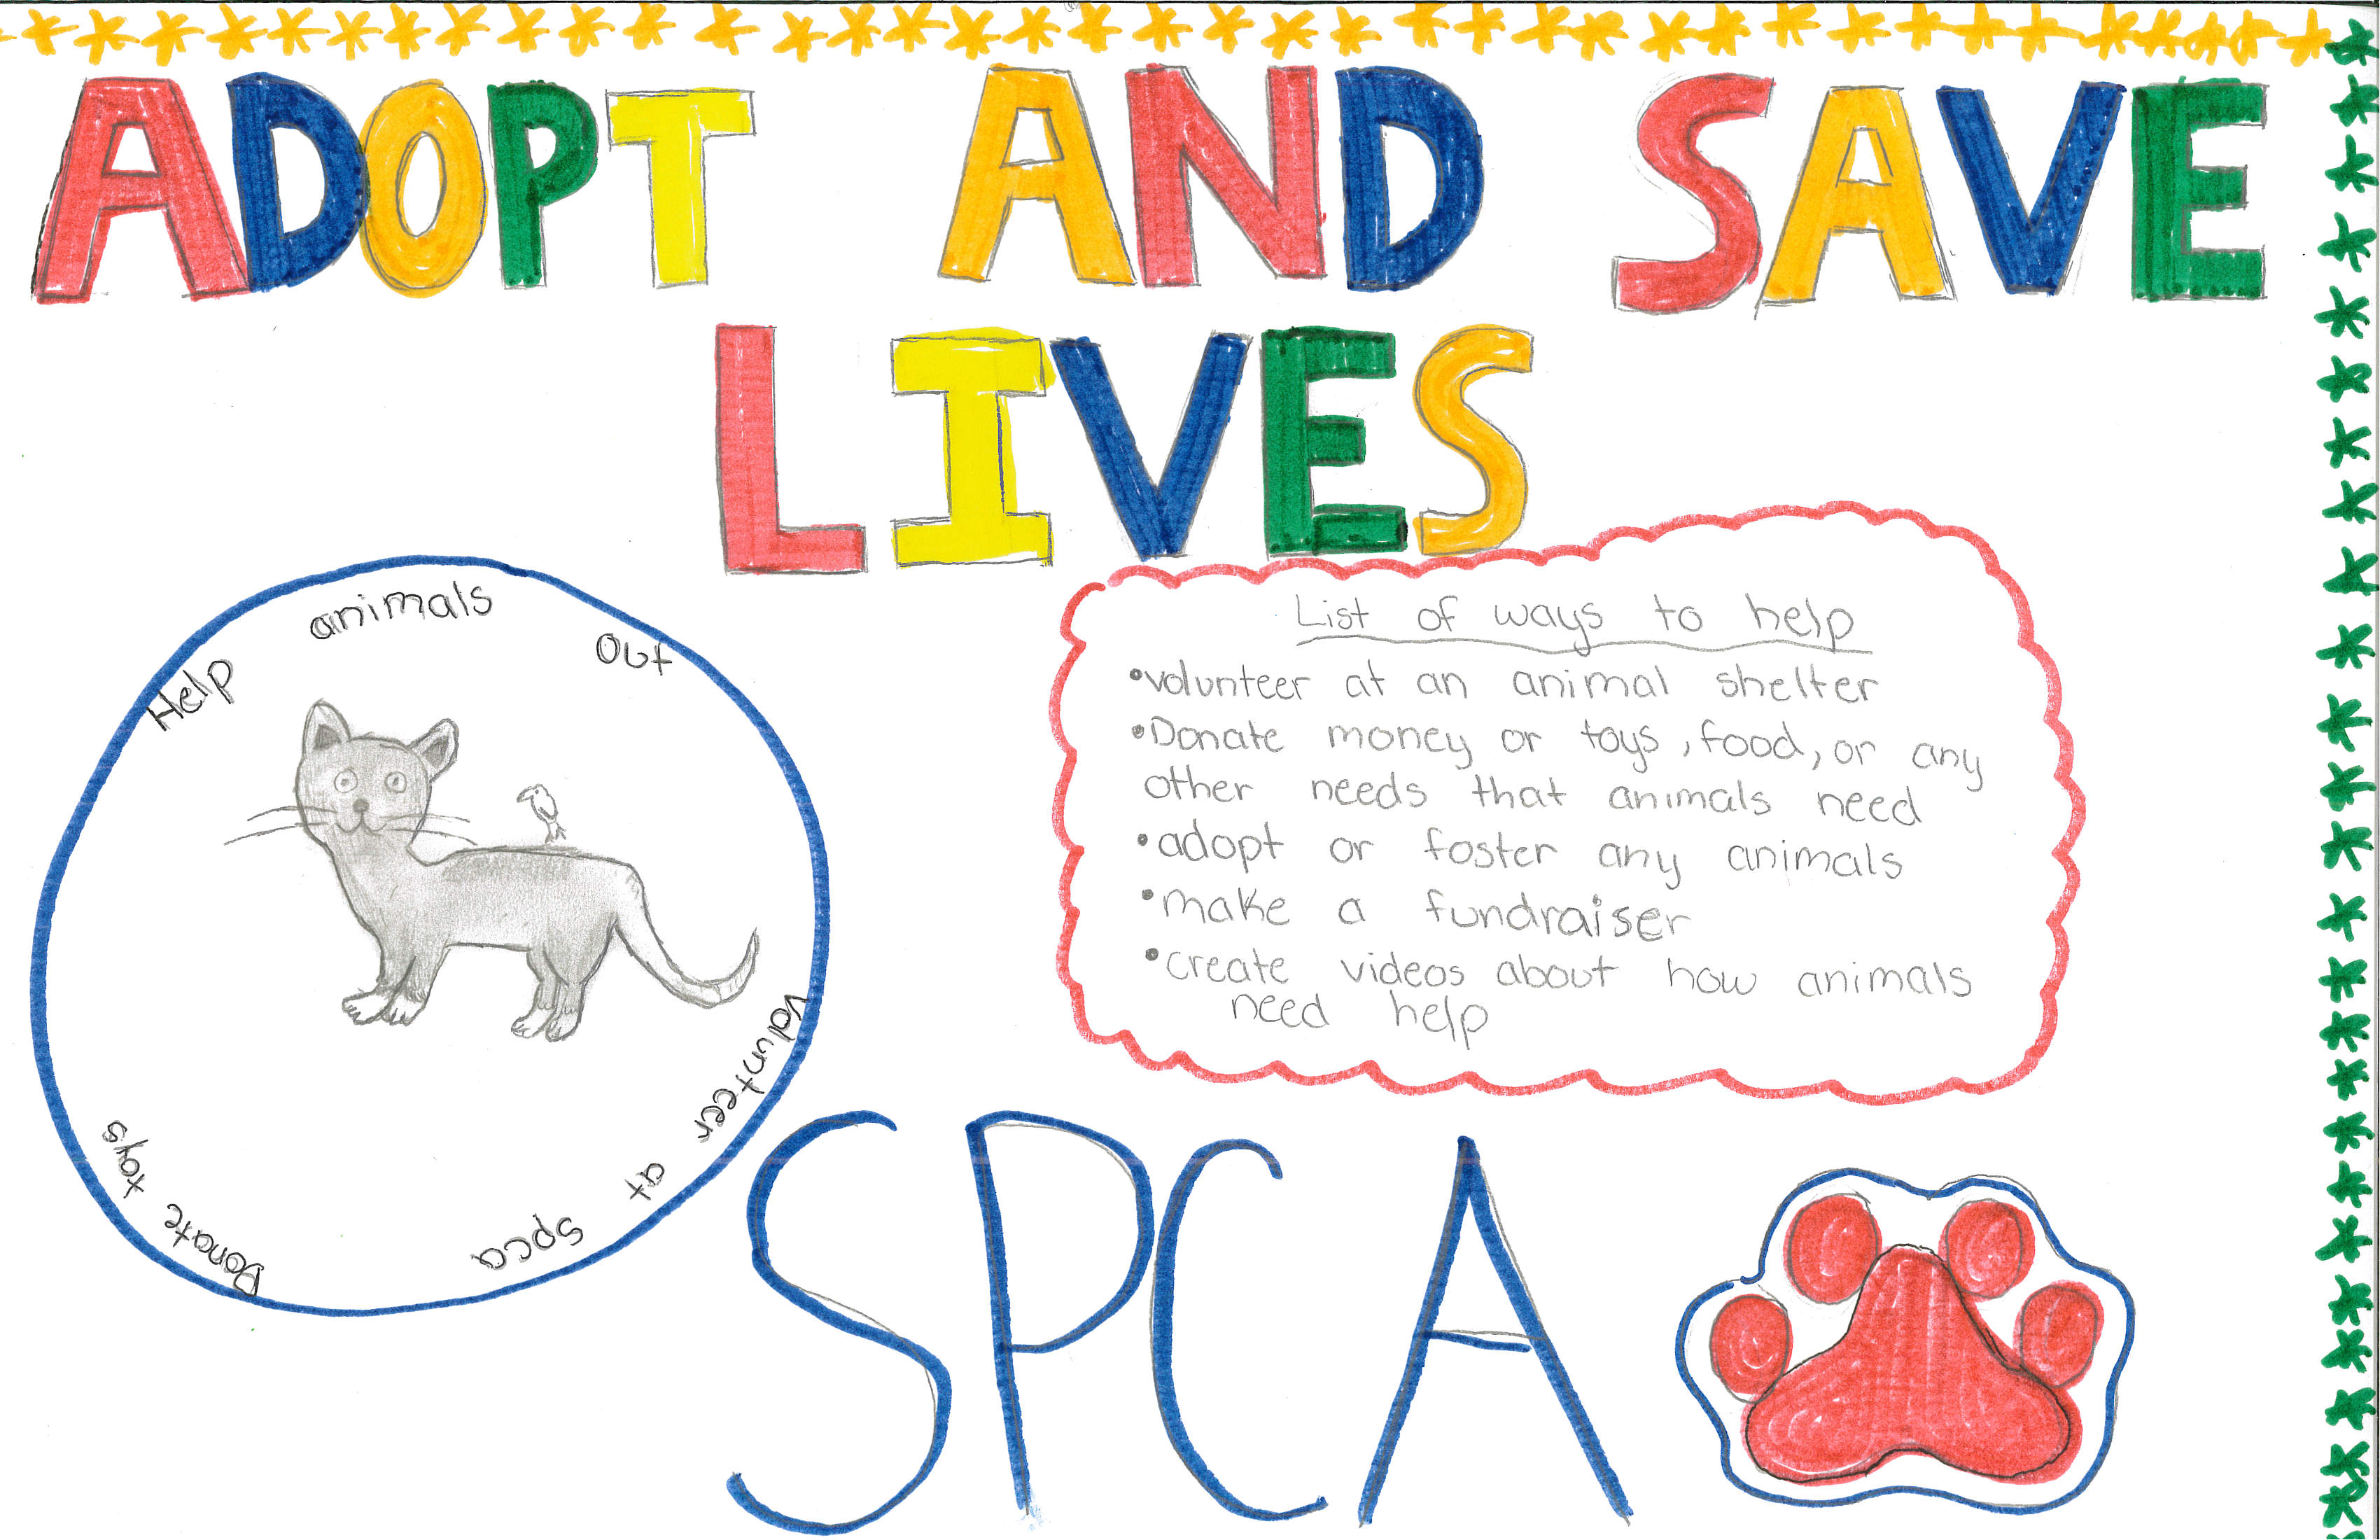 ADOPT AND SAVE
LIVES
Help animals Out
Volunteer at Spca
Donate toys
List of ways to help
•volunteer at an animal shelter
•Donate money or toys, food, or any
other needs that animals need
•adopt or foster any animals
•make a fundraiser
•create videos about how animals
need help
SPCA